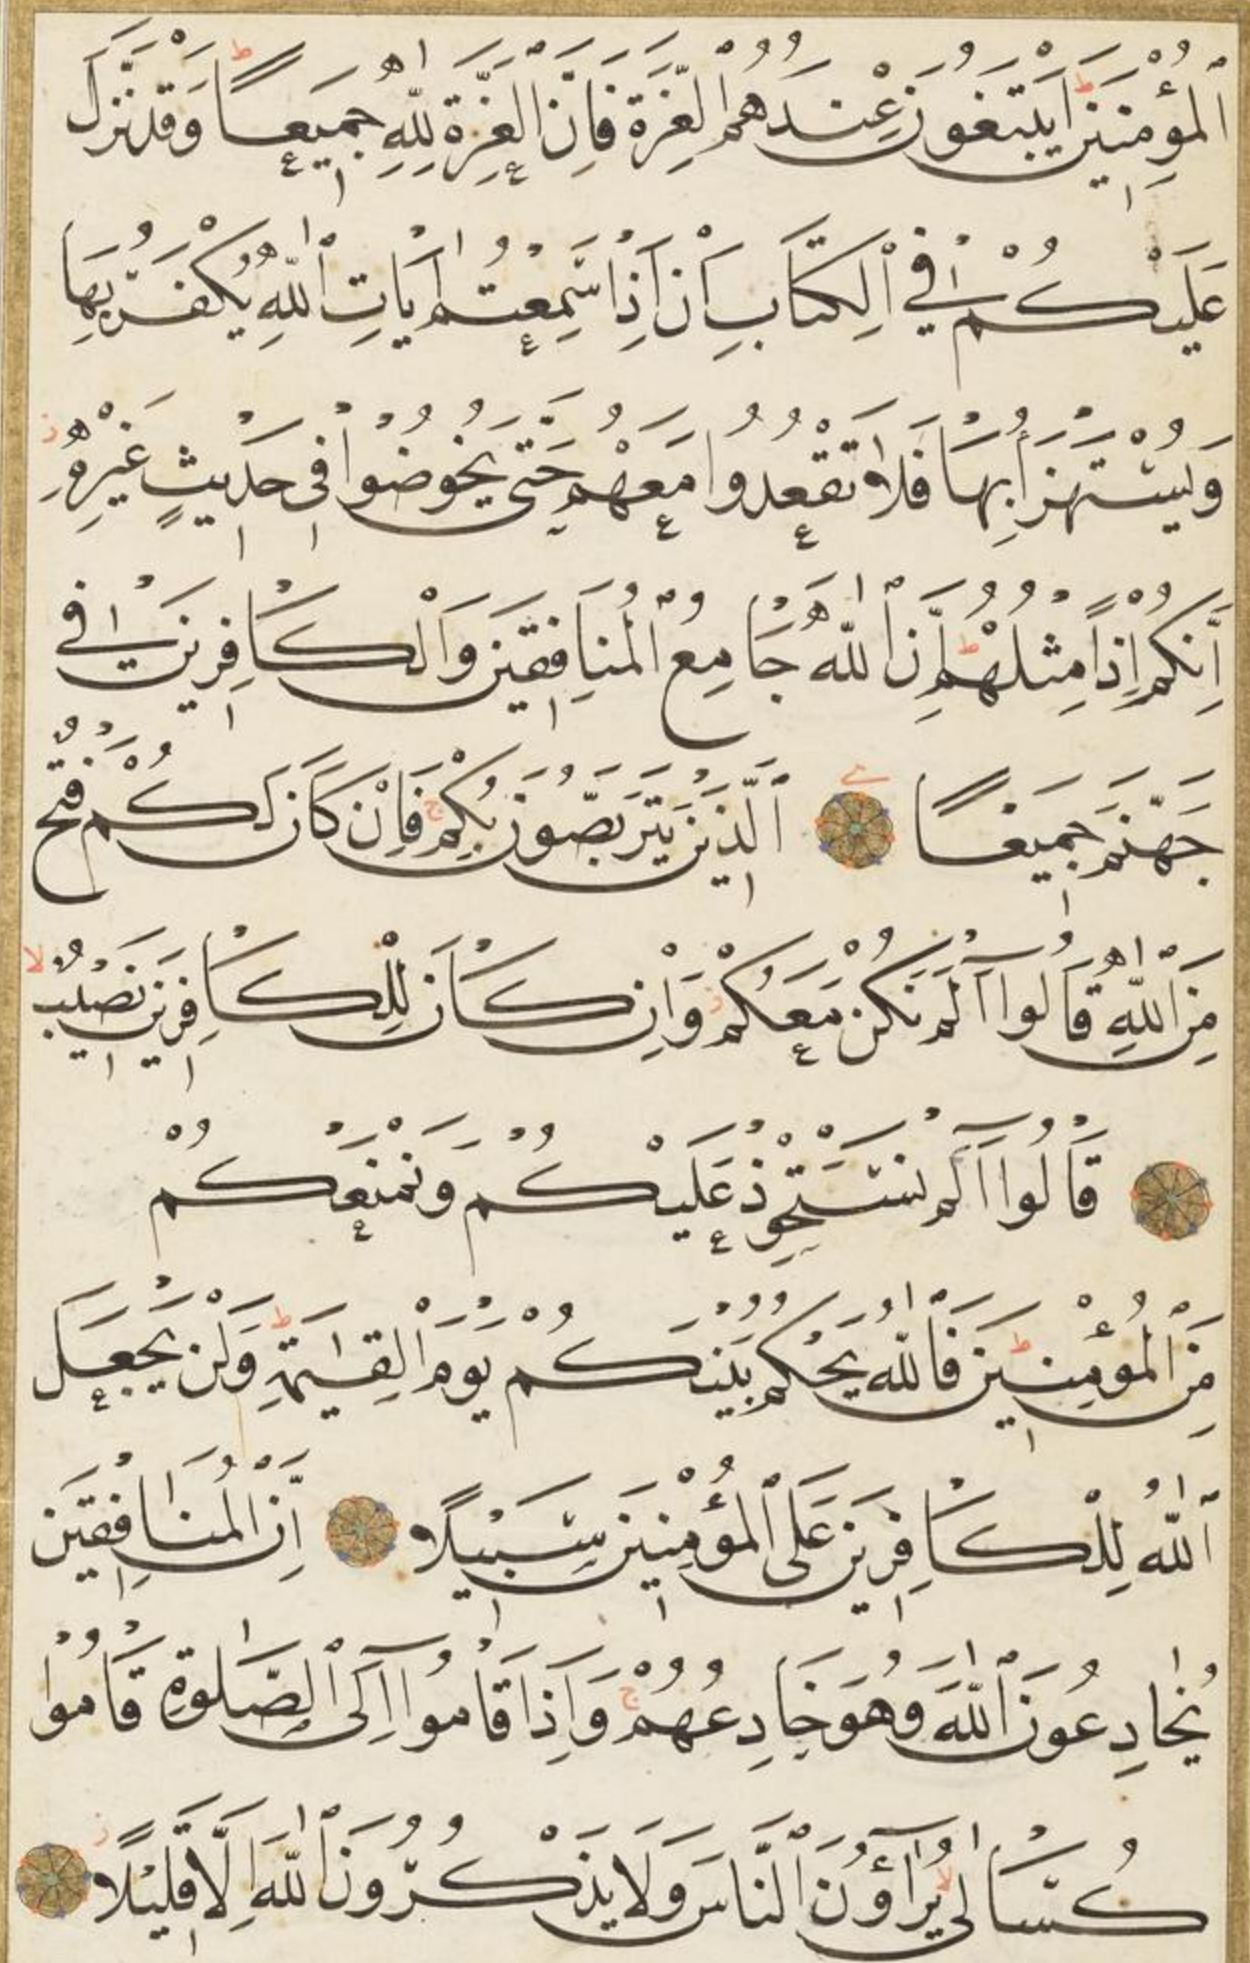 ٱلْمُؤْمِنِينَ أَيَبْتَغُونَ عِنْدَهُمُ الْعِزَّةَ فَإِنَّ الْعِزَّةَ لِلّٰهِ جَمِيعًا وَقَدْ نَزَّلَ
عَلَيْكُمْ فِي ٱلْكِتَابِ أَنْ إِذَا سَمِعْتُمْ اٰيَاتِ ٱللّٰهِ يُكْفَرُ بِهَا
وَيُسْتَهْزَأُ بِهَا فَلَا تَقْعُدُوا مَعَهُمْ حَتَّى يَخُوضُوا فِي حَدِيثٍ غَيْرِهِ
إِنَّكُمْ إِذًا مِثْلُهُمْ إِنَّ ٱللّٰهَ جَامِعُ ٱلْمُنَافِقِينَ وَالْكَافِرِينَ فِي
جَهَنَّمَ جَمِيعًا ٱلَّذِينَ يَتَرَبَّصُونَ بِكُمْ فَإِنْ كَانَ لَكُمْ فَتْحٌ
مِنَ ٱللّٰهِ قَالُوا أَلَمْ نَكُنْ مَعَكُمْ وَإِنْ كَانَ لِلْكَافِرِينَ نَصِيبٌ
قَالُوا أَلَمْ نَسْتَحْوِذْ عَلَيْكُمْ وَنَمْنَعْكُمْ
مِنَ ٱلْمُؤْمِنِينَ فَٱللّٰهُ يَحْكُمُ بَيْنَكُمْ يَوْمَ الْقِيٰمَةِ وَلَنْ يَجْعَلَ
ٱللّٰهُ لِلْكَافِرِينَ عَلَى ٱلْمُؤْمِنِينَ سَبِيلًا إِنَّ الْمُنَافِقِينَ
يُخَادِعُونَ ٱللّٰهَ وَهُوَ خَادِعُهُمْ وَإِذَا قَامُوا إِلَى ٱلصَّلٰوةِ قَامُوا
كُسَالٰى يُرَاؤُنَ ٱلنَّاسَ وَلَا يَذْكُرُونَ ٱللّٰهَ إِلَّا قَلِيلًا